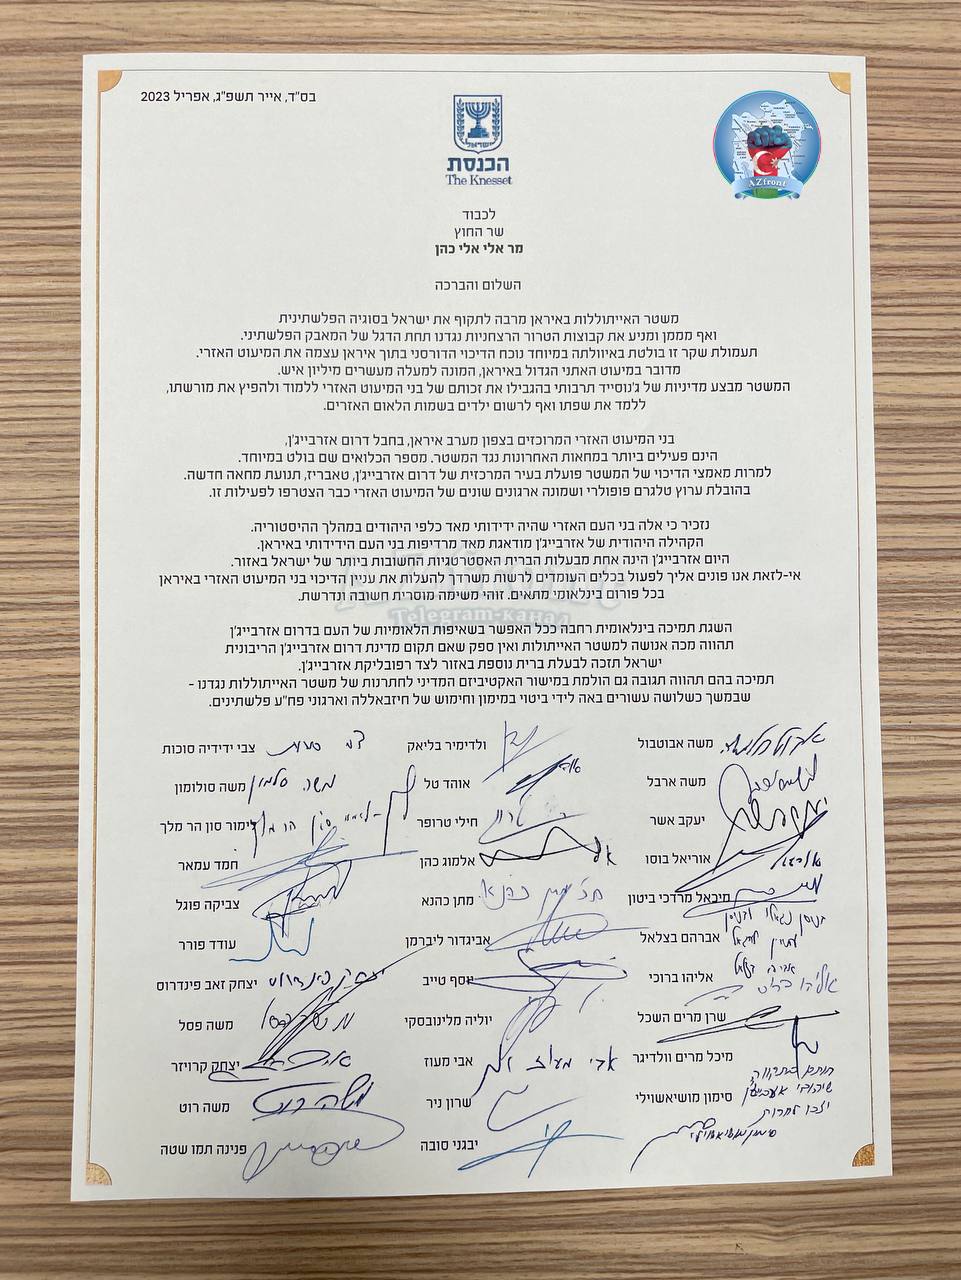 בס"ד, אייר תשפ"ג, אפריל 2023
הכנסת
The Knesset
AZfront
לכבוד
שר החוץ
מר אלי אלי כהן
השלום והברכה
משטר האייתוללות באיראן מרבה לתקוף את ישראל בסוגיה הפלשתינית
ואף מממן ומניע את קבוצות הטרור הרצחניות נגדנו תחת הדגל של המאבק הפלשתיני.
תעמולת שקר זו בולטת באיוולתה במיוחד נוכח הדיכוי הדורסני בתוך איראן עצמה את המיעוט האזרי.
מדובר במיעוט האתני הגדול באיראן, המונה למעלה מעשרים מיליון איש.
המשטר מבצע מדיניות של ג'נוסייד תרבותי בהגבילו את זכותם של בני המיעוט האזרי ללמוד ולהפיץ את מורשתו,
ללמד את שפתו ואף לרשום ילדים בשמות הלאום האזרים.
בני המיעוט האזרי המרוכזים בצפון מערב איראן, בחבל דרום אזרבייג'ן,
הינם פעילים ביותר במחאות האחרונות נגד המשטר. מספר הכלואים שם בולט במיוחד.
למרות מאמצי הדיכוי של המשטר פועלת בעיר המרכזית של דרום אזרבייג'ן, טאבריז, תנועת מחאה חדשה.
בהובלת ערוץ טלגרם פופולרי ושמונה ארגונים שונים של המיעוט האזרי כבר הצטרפו לפעילות זו.
נזכיר כי אלה בני העם האזרי שהיה ידידותי מאד כלפי היהודים במהלך ההיסטוריה.
הקהילה היהודית של אזרבייג'ן מודאגת מאד מרדיפות בני העם הידידותי באיראן.
היום אזרבייג'ן הינה אחת מבעלות הברית האסטרטגיות החשובות ביותר של ישראל באזור.
אי-לזאת אנו פונים אליך לפעול בכלים העומדים לרשות משרדך להעלות את עניין הדיכוי בני המיעוט האזרי באיראן
בכל פורום בינלאומי מתאים. זוהי משימה מוסרית חשובה ונדרשת.
Telegram-канал
השגת תמיכה בינלאומית רחבה ככל האפשר בשאיפות הלאומיות של העם בדרום אזרבייג'ן
תהווה מכה אנושה למשטר האייתולות ואין ספק שאם תקום מדינת דרום אזרבייג'ן הריבונית
ישראל תזכה לבעלת ברית נוספת באזור לצד רפובליקת אזרבייג'ן.
תמיכה בהם תהווה תגובה גם הולמת במישור האקטיביזם המדיני לחתרנות של משטר האייתוללות נגדנו -
שבמשך כשלושה עשורים באה לידי ביטוי במימון וחימוש של חיזבאללה וארגוני פח"ע פלשתינים.
משה אבוטבול ולדימיר בליאק צבי ידידיה סוכות
משה ארבל אוהד טל משה סולומון משה סלמון
יעקב אשר חילי טרופר לימור סון הר מלך
אוריאל בוסו אלמוג כהן חמד עמאר
מיכאל מרדכי ביטון מתן כהנא צביקה פוגל
אברהם בצלאל אביגדור ליברמן עודד פורר
אליהו ברוכי יוסף טייב יצחק זאב פינדרוס
שרן מרים השכל יוליה מלינובסקי משה פסל
מיכל מרים וולדיגר אבי מעוז אבי מעוז יצחק קרויזר
סימון מושיאשוילי שרון ניר משה רוט משה רוט
יבגני סובה פנינה תמנו שטה